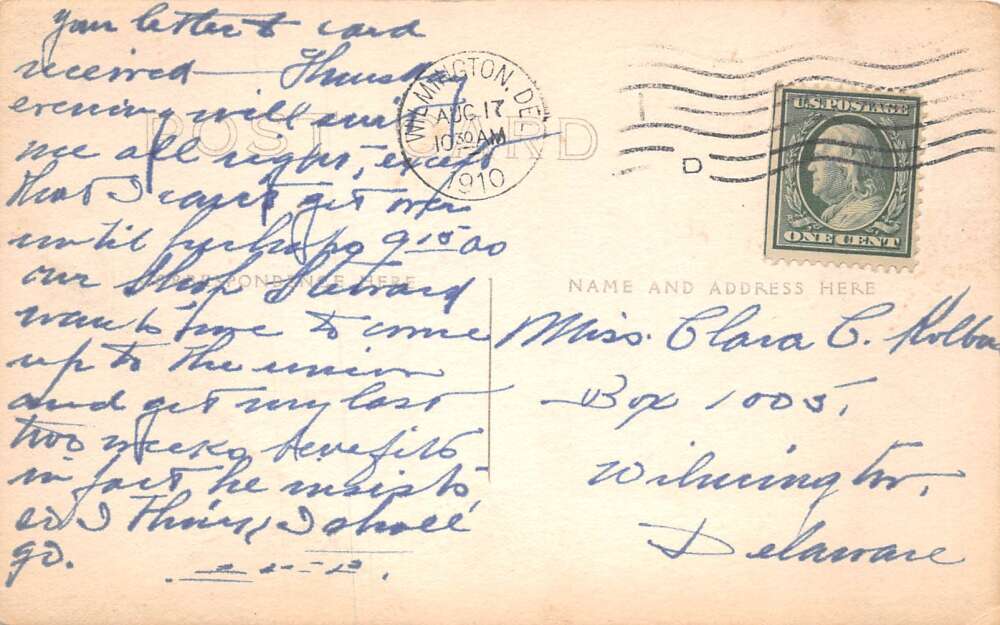 Your letter & card
received — Thursday
evening will suit
me all right, except
that I can't get over
until perhaps 9 15 as
our Shop Steward
wants me to come
up to the union
and get my last
two weeks benefits
in fact he insists
so I think I shall
go.
POST CARD
CORRESPONDENCE HERE
WILMINGTON, DEL.
AUG 17
10 30 AM
1910
D
U.S. POSTAGE
ONE CENT
NAME AND ADDRESS HERE
Miss. Clara C.
Box 1005,
Wilmington,
Delaware